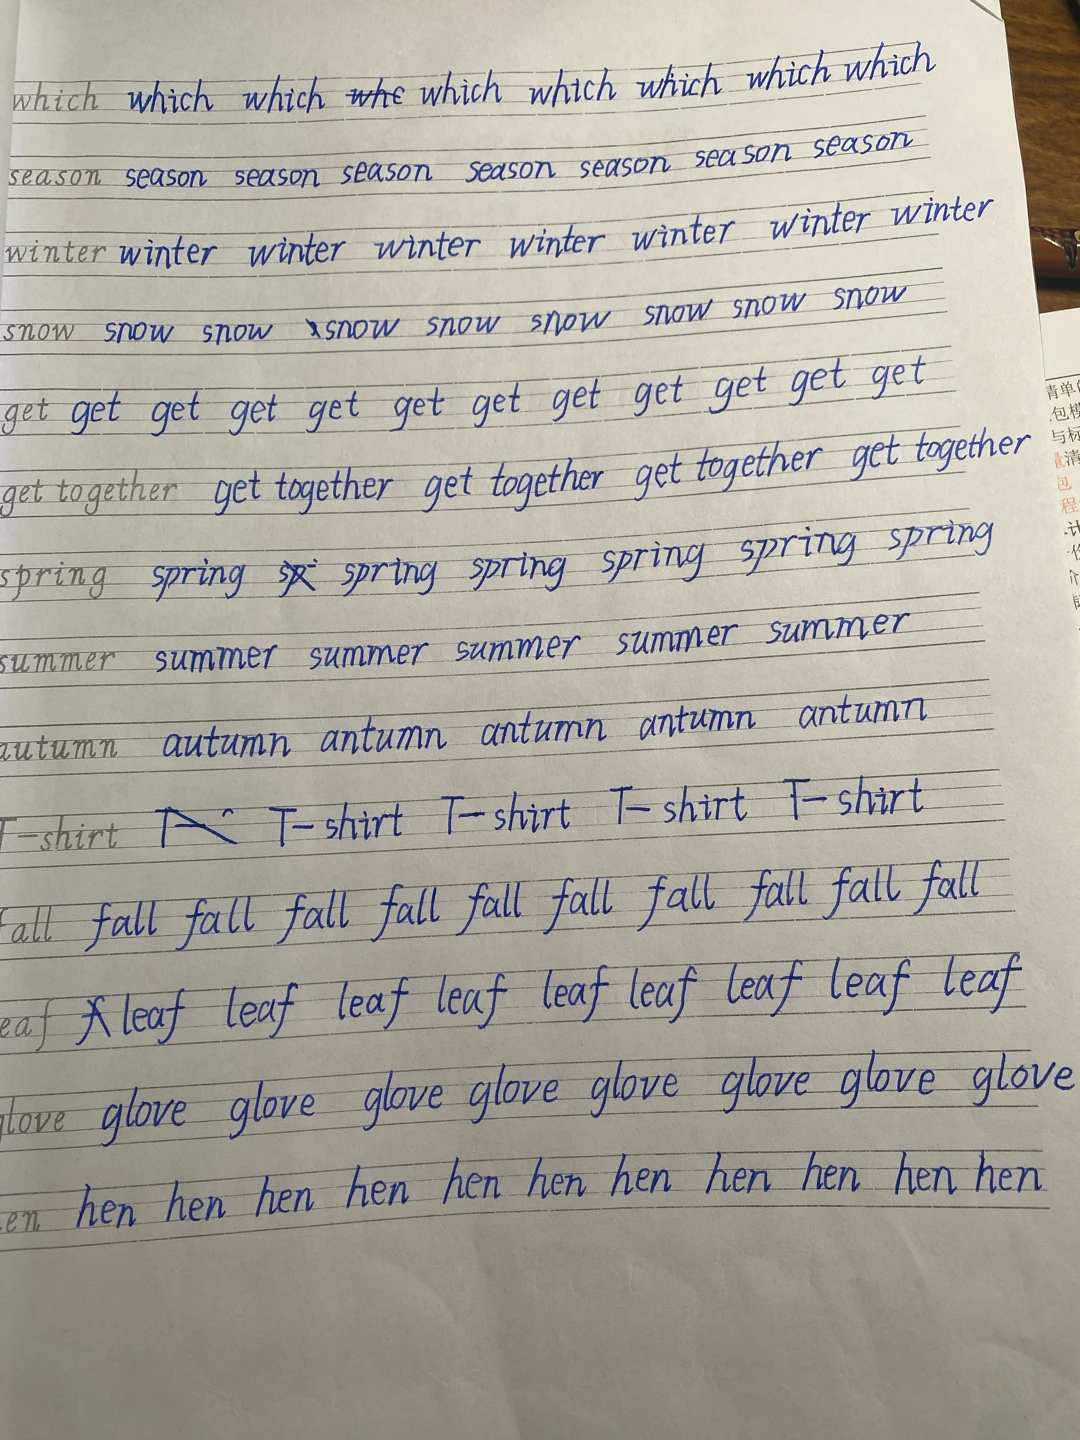 which which which whe which which which which which
season season season season season season season season
winter winter winter winter winter winter winter winter
snow snow snow snow snow snow snow snow snow
get get get get get get get get get get get get
get together get together get together get together get together
spring spring sp spring spring spring spring spring
summer summer summer summer summer summer
autumn autumn antumn antumn antumn antumn
T-shirt T- T-shirt T-shirt T-shirt T-shirt
fall fall fall fall fall fall fall fall fall fall
eaf leaf leaf leaf leaf leaf leaf leaf leaf leaf
glove glove glove glove glove glove glove glove glove
en hen hen hen hen hen hen hen hen hen hen hen
清单
包
与标
清
包
程
计
价